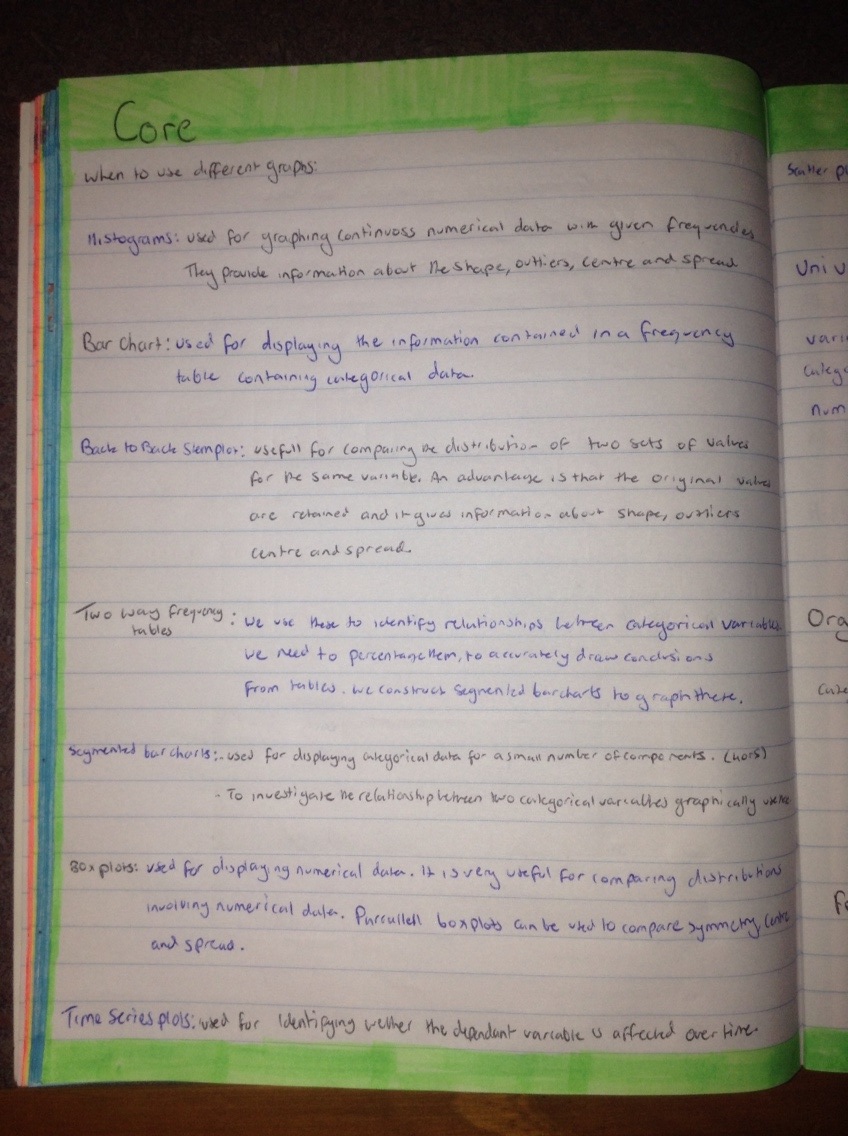 Core
when to use different graphs:
Histograms: used for graphing continuoss numerical data with given frequencies
They provide information about the shape, outliers, centre and spread
Bar Chart: used for displaying the information contained in a frequency
table containing categorical data.
Back to Back Stemplot: usefull for comparing the distribution of two sets of values
for the same variable. An advantage is that the original values
are retained and it gives information about shape, outliers
centre and spread.
Two way frequency
tables
: we use these to identify relationships between categorical variables.
we need to percentage them, to accurately draw conclusions
from tables. we construct segmented barcharts to graph there.
Segmented bar charts: - used for displaying categorical data for a small number of components.
- To investigate the relationship between two categorical variables graphically use
Box plots: used for displaying numerical data. It is very useful for comparing distributions
involving numerical data. Purcullell boxplots can be used to compare symmetry, centre
and spread.
Time Series plots: used for identifying wether the dependant variable is affected over time.
Scatter pl
Univ
vari
catego
num
Org
cate